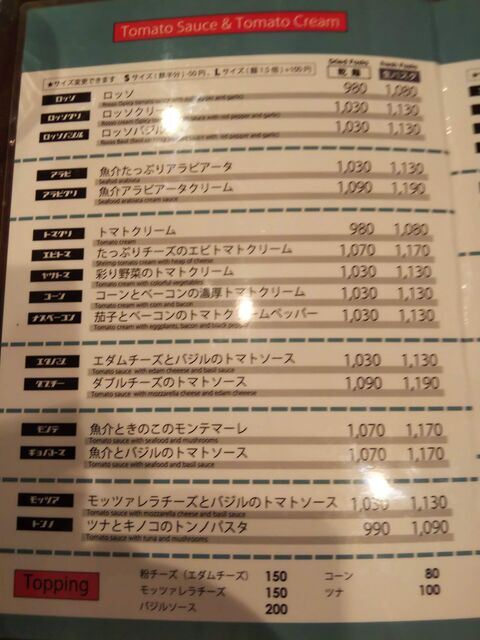 Tomato Sauce & Tomato Cream
★サイズ変更できます Sサイズ(麺半分)-50円、Lサイズ(麺1.5倍)+100円
乾麺 生パスタ
ロッソ ロッソ 980 1,080
ロッソクリ ロッソクリーム 1,030 1,130
Rosso cream (Spicy with red pepper and garlic)
ロッソバジル ロッソバジル 1,030 1,130
with red pepper and garlic
アラビ 魚介たっぷりアラビアータ 1,030 1,130
Seafood arabiata
アラビクリ 魚介アラビアータクリーム 1,090 1,190
Seafood arabiata cream sauce
トマクリ トマトクリーム 980 1,080
Tomato cream
エビトマ たっぷりチーズのエビトマトクリーム 1,070 1,170
Shrimp tomato cream with heap of cheese
ヤサトマ 彩り野菜のトマトクリーム 1,030 1,130
Tomato cream with colorful vegetables
コーン コーンとベーコンの濃厚トマトクリーム 1,030 1,130
Tomato cream with corn and bacon
ナスベーコン 茄子とベーコンのトマトクリームペッパー 1,030 1,130
Tomato cream with eggplants, bacon and black pepper
エダバジ エダムチーズとバジルのトマトソース 1,030 1,130
Tomato sauce with edam cheese and basil sauce
ダブチー ダブルチーズのトマトソース 1,090 1,190
Tomato sauce with mozzarella cheese and edam cheese
モンテ 魚介ときのこのモンテマーレ 1,070 1,170
Tomato sauce with seafood and mushrooms
ギョバトマ 魚介とバジルのトマトソース 1,070 1,170
Tomato sauce with seafood and basil sauce
モッツァ モッツァレラチーズとバジルのトマトソース 1,030 1,130
Tomato sauce with mozzarella cheese and basil sauce
トンノ ツナとキノコのトンノパスタ 990 1,090
Tomato sauce with tuna and mushrooms
Topping
粉チーズ(エダムチーズ) 150 コーン 80
モッツァレラチーズ 150 ツナ 100
バジルソース 200